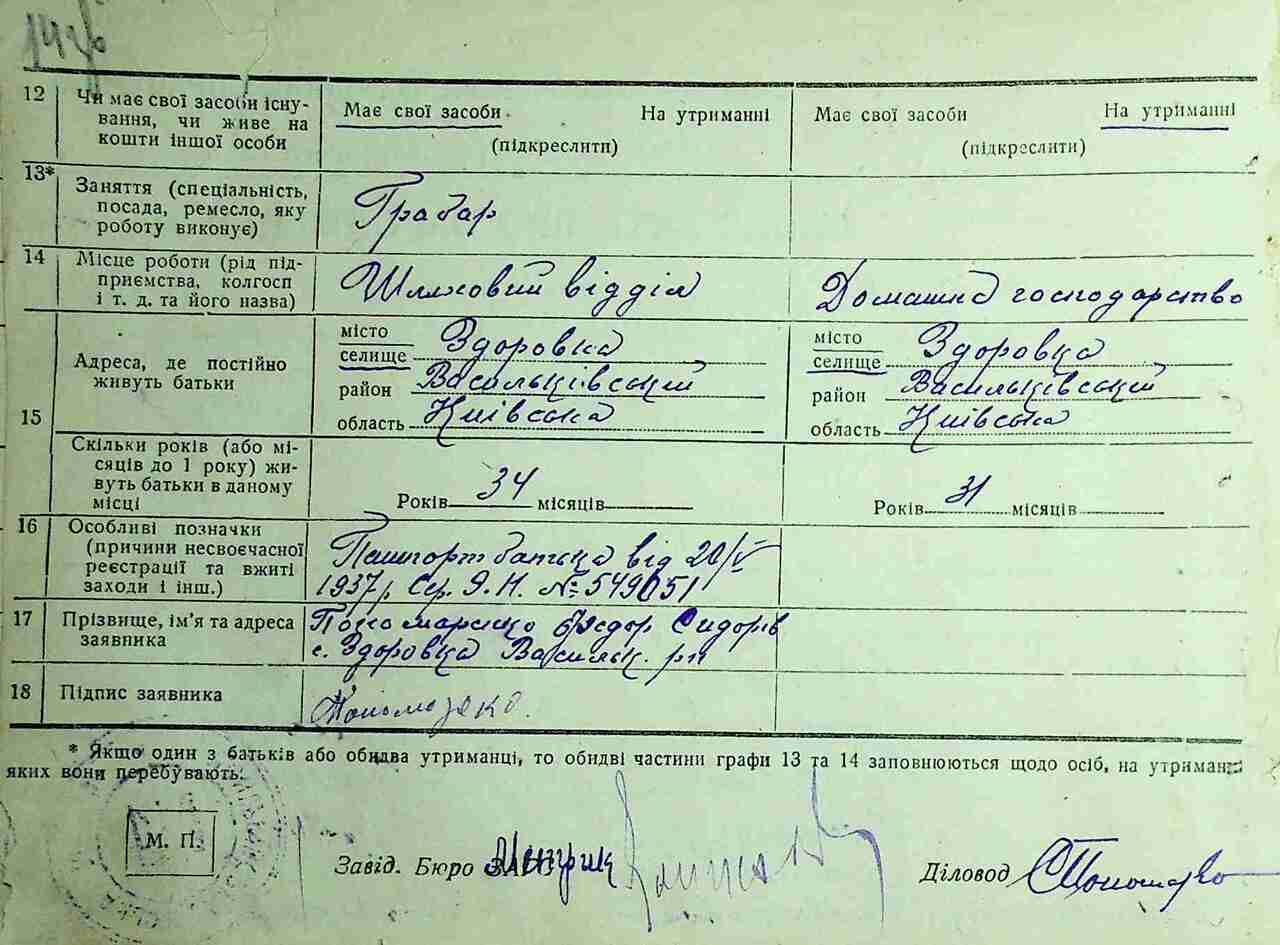 12 Чи має свої засоби існу-
вання, чи живе на
кошти іншої особи
Має свої засоби На утриманні
(підкреслити)
Має свої засоби На утриманні
(підкреслити)
13* Заняття (спеціальність,
посада, ремесло, яку
роботу виконує)
Грабар
14 Місце роботи (рід під-
приємства, колгосп
і т. д. та його назва)
Шляховий відділ
Домашнє господарство
15 Адреса, де постійно
живуть батьки
місто
селище Здоровка
район Васильківський
область Київська
місто
селище Здоровка
район Васильківський
область Київська
Скільки років (або мі-
сяців до 1 року) жи-
вуть батьки в даному
місці
Років 34 місяців
Років 31 місяців
16 Особливі позначки
(причини несвоєчасної
реєстрації та вжиті
заходи і інш.)
Пашпорт батька від 20/V
1937 р. Сер. Я.Н. № 549051
17 Прізвище, ім'я та адреса
заявника
Пономаренко Федор Сидорів
с. Здоровка Васильк. рн
18 Підпис заявника
* Якщо один з батьків або обидва утриманці, то обидві частини графи 13 та 14 заповнюються щодо осіб, на утриманні
яких вони перебувають.
М. П.
Завід. Бюро ЗАГС
Діловод